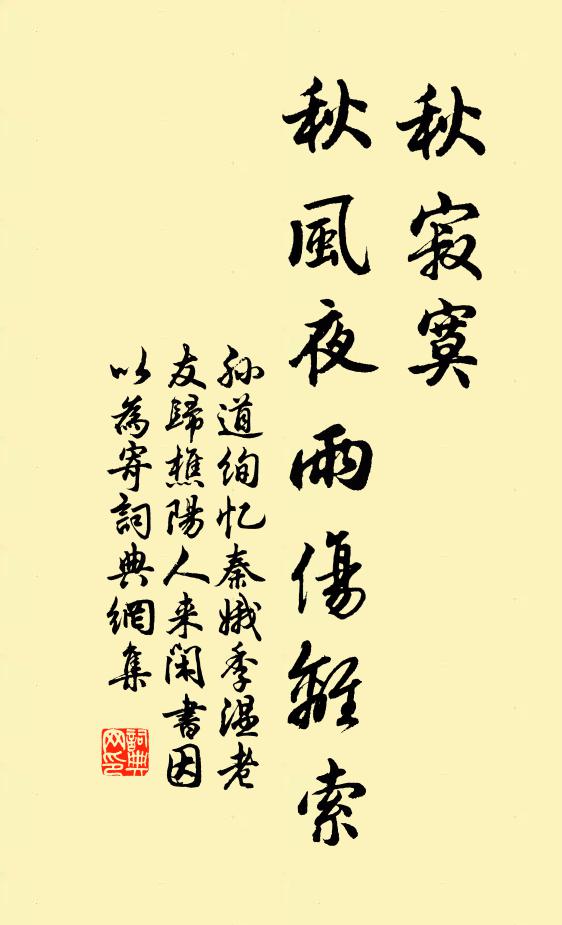 秋寂寞
秋風夜雨傷離索
孙道绚忆秦娥季温老
友歸樵陽人来閑書因
以為寄詞典網集
詞典
网印